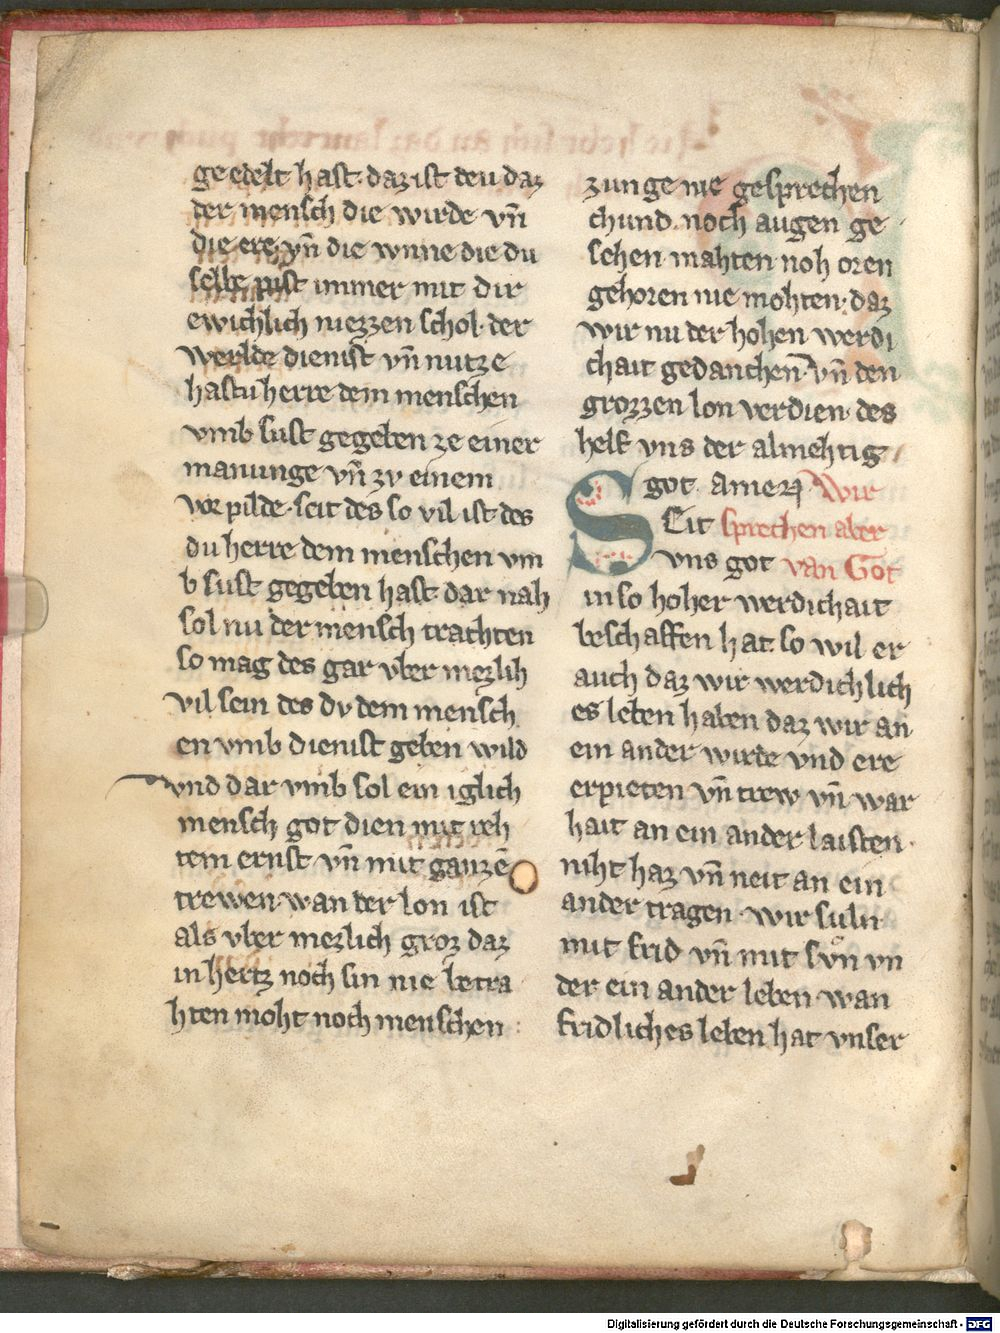 ge edelt hast· daz ist deu daz
der mensch die wirde vn̄
die ere vn̄ die wnne die du
selbe pist immer mit dir
ewichlich niezzen schol· der
werlde dienist vn̄ nutze
hastu herre dem menschen
vmb sust gegeben ze einer
manunge vn̄ zv einem
vor pilde· seit des so vil ist des
du herre dem menschen vm
b sust gegeben hast dar nah
sol nu der mensch trachten
so mag des gar vber mezlih
vil sein des dv dem mensch
en vmb dienist geben wild
vnd dar vmb sol ein iglich
mensch got dien mit reh
tem ernst vn̄ mit ganzē
trewen· wan der lon ist
als vber mezlich groz daz
in hertz noch sin nie betra
hten moht noch menschen
zunge nie gesprechen
chund· noch augen ge
sehen mahten noh oren
gehoren nie mohten· daz
wir nu der hohen werdi
chait gedanchen· vn̄ den
grozzen lon verdien· des
helf vns der almehtig
got· amen Wir
Seit sprechen aber
vns got van Got
in so hoher werdichait
beschaffen hat· so wil er
auch daz wir werdichlich
es leben haben daz wir an
ein ander wirde vnd ere
erpieten vn̄ trew vn̄ war
hait an ein ander laisten·
niht haz vn̄ neit an ein
ander tragen· wir suln
mit frid vn̄ mit svͦn vn
der ein ander leben· wan
fridliches leben hat vnser
Digitalisierung gefördert durch die Deutsche Forschungsgemeinschaft - DFG